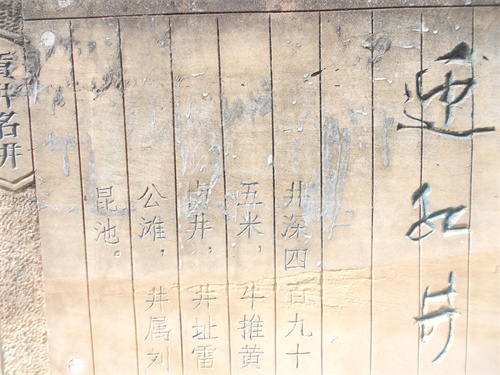 井
井深四百九十
五米，牛推黄
卤井，井址雷
公滩，井属刘
昆池。
貢井名井